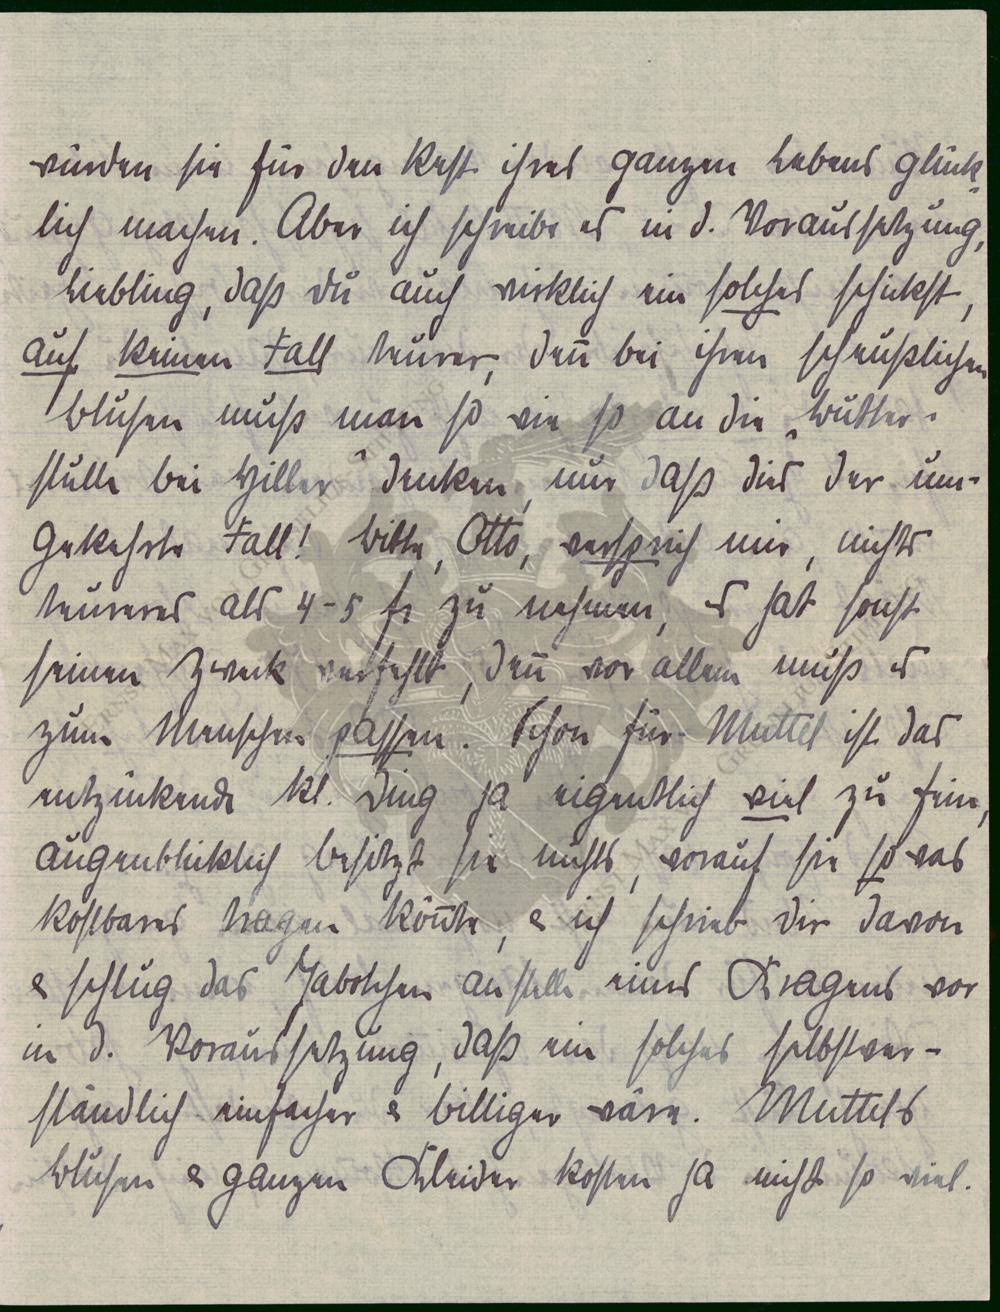 würden sie für den Rest ihres ganzen Lebens glück-
lich machen. Aber ich schreibe es in d. Voraussetzung,
Liebling, daß Du auch wirklich ein solches schickst,
auf keinen Fall teurer, den̄ bei ihren scheußlichen
Blusen muß man so wie so an die „Butter-
stulle bei Hiller" denken, nur daß dies der um-
gekehrte Fall! Bitte, Otto, versprich mir, nichts
teureres als 4-5 fr zu nehmen, es hat sonst
seinen Zweck verfehlt, den̄ vor allem muß es
zum Menschen passen. Schon für Muttel ist das
entzückende kl. Ding ja eigentlich viel zu fein,
augenblicklich besitzt sie nichts, worauf sie so was
kostbares tragen kön̄te, & ich schrieb Dir davon
& schlug das Jabotchen anstelle eines Kragens vor
in d. Voraussetzung, daß ein solches selbstver-
ständlich einfacher & billiger wäre. Muttels
Blusen & ganzen Kleider kosten ja nicht so viel.